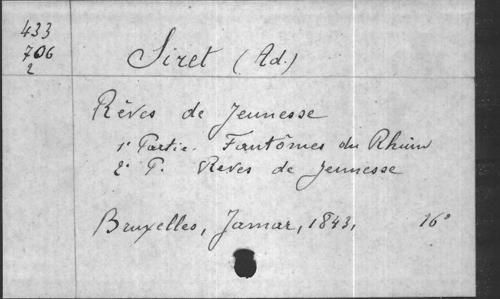 433
706
2
Siret (Ad.)
Rêves de Jeunesse
1e Partie. Fantômes du Rhin
2e P. Reves de Jeunesse
Bruxelles, Jamar, 1843, 16°